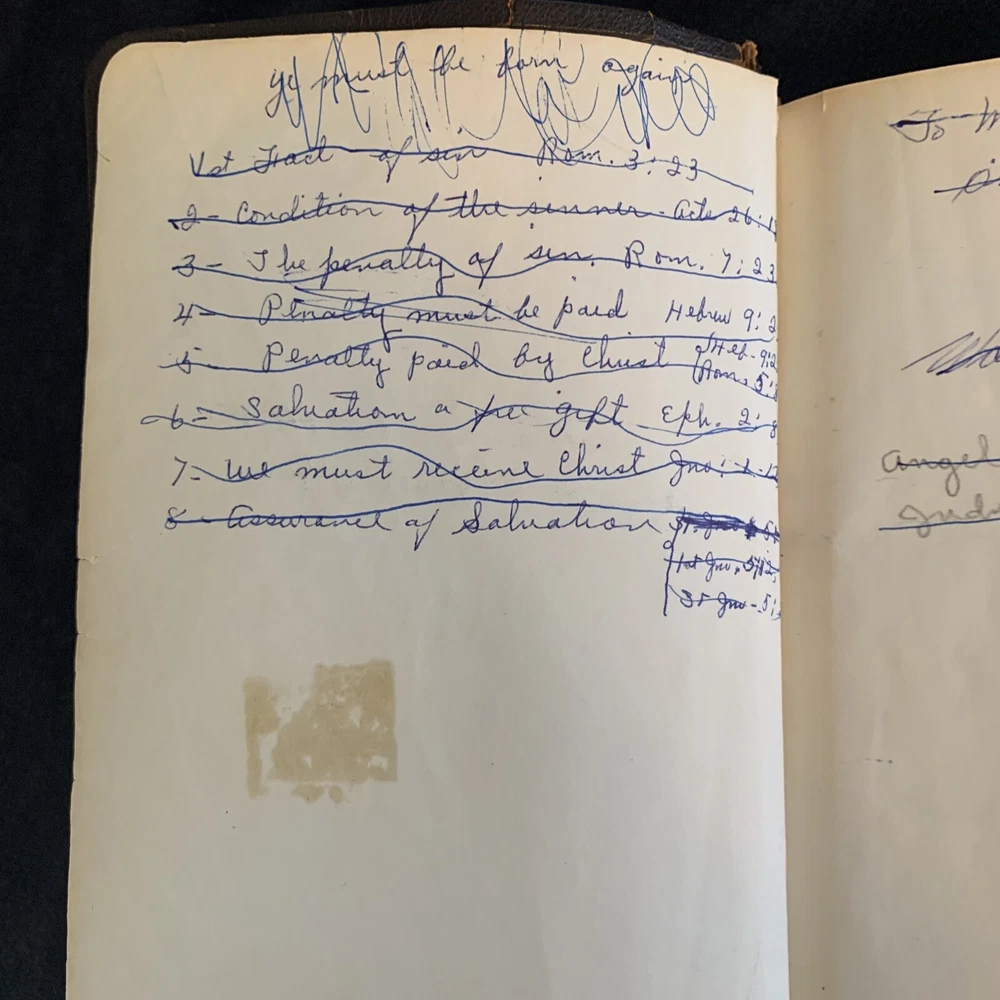 ye must be born again
1st Fact of sin Rom. 3:23
2- Condition of the sinner - Acts 26:1
3- The penalty of sin. Rom. 7:23
4- Penalty must be paid Hebrew 9:2
5- Penalty paid by Christ Heb- 9:2
Rom. 5:
6- Salvation a free gift Eph. 2:8
7- We must receive Christ Jno: 1-12
8- Assurance of Salvation
1st Jno.
Jno - 5:
To
angel